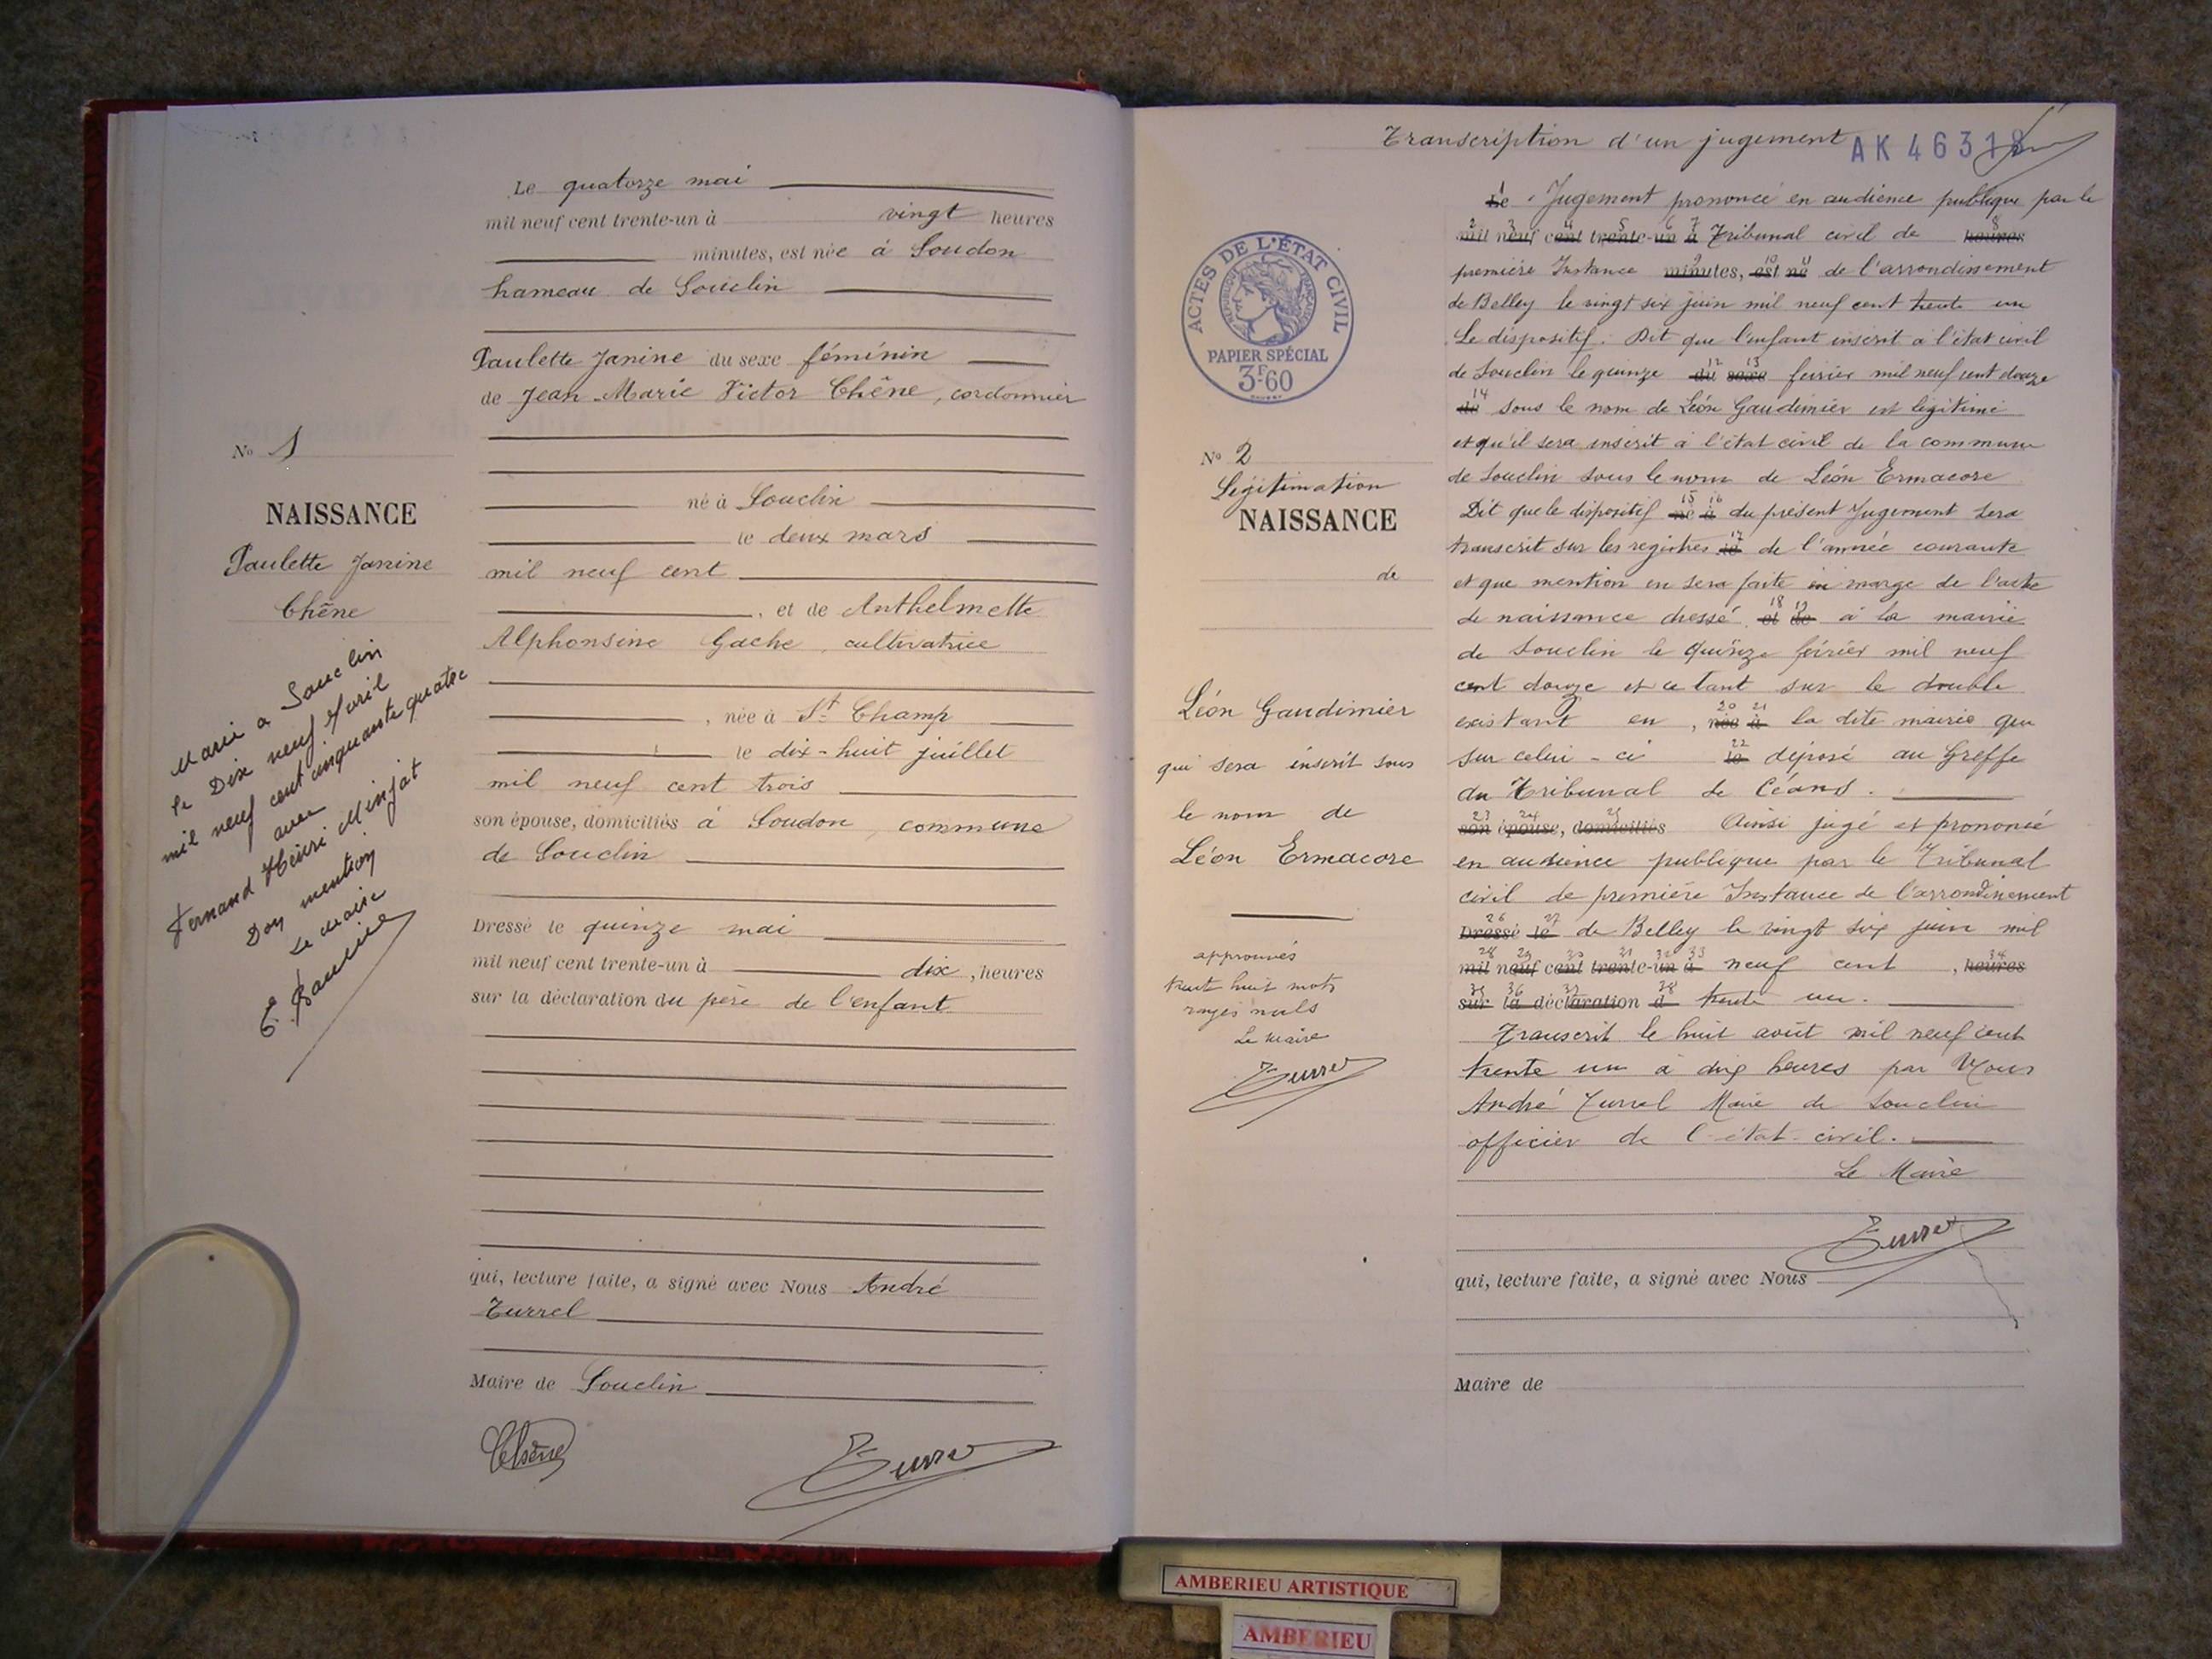 Le quatorze mai
mil neuf cent trente-un à vingt heures
minutes, est née à Soudon
hameau de Souclin
Paulette Janine du sexe féminin
de Jean-Marie Victor Chêne, cordonnier
né à Souclin
le deux mars
mil neuf cent
, et de Anthelmette
Alphonsine Gache, cultivatrice
, née à St Champ
le dix-huit juillet
mil neuf cent trois
son épouse, domiciliés à Soudon, commune
de Souclin
Dressé le quinze mai
mil neuf cent trente-un à dix, heures
sur la déclaration du père de l'enfant
qui, lecture faite, a signé avec Nous André
Turrel
Maire de Souclin
Chêne
Turrel
No 1
NAISSANCE
Paulette Janine
Chêne
Marié a Souclin
le Dix neuf Avril
mil neuf cent cinquante quatre
avec
Fernand Henri Minjat
Don mention
Le maire
Transcription d'un jugement
AK 46318
ACTES DE L'ÉTAT CIVIL
RÉPUBLIQUE FRANÇAISE
PAPIER SPÉCIAL
3F60
No 2
Légitimation
NAISSANCE
de
Léon Gaudimier
qui sera inscrit sous
le nom de
Léon Ermacore
approuvés
trent huit mots
rayés nuls
Le maire
Turrel
1 Le Jugement prononcé en audience publique par le
2 3 4 5 6 7 8
mil neuf cent trente-un à Tribunal civil de heures
9 10 11
première Instance minutes, est né de l'arrondissement
de Belley le vingt six juin mil neuf cent trente un
Le dispositif: Dit que l'enfant inscrit a l'état civil
12 13
de Souclin le quinze du sexe février mil neuf cent douze
14
de sous le nom de Léon Gaudimier est légitimé
et qu'il sera inscrit à l'état civil de la commune
de Souclin sous le nom de Léon Ermacore
15 16
Dit que le dispositif né à du présent Jugement sera
17
transcrit sur les registres le de l'année courante
et que mention en sera faite en marge de l'acte
18 19
de naissance dressé et de à la mairie
de Souclin le quinze février mil neuf
cent douze et ce tant sur le double
20 21
existant en , née à la dite mairie que
22
sur celui-ci le déposé au Greffe
du Tribunal de Céans.
23 24 25
son épouse, domiciliés Ainsi jugé et prononcé
en audience publique par le Tribunal
civil de première Instance de l'arrondissement
26 27
Dressé le de Belley le vingt six juin mil
28 29 30 31 32 33 34
mil neuf cent trente-un à neuf cent , heures
35 36 37 38
sur la déclaration d trente un.
Transcrit le huit août mil neuf cent
trente un à dix heures par Nous
André Turrel Maire de Souclin
officier de l'état-civil.
Le Maire
Turrel
qui, lecture faite, a signé avec Nous
Maire de
AMBERIEU ARTISTIQUE
AMBERIEU